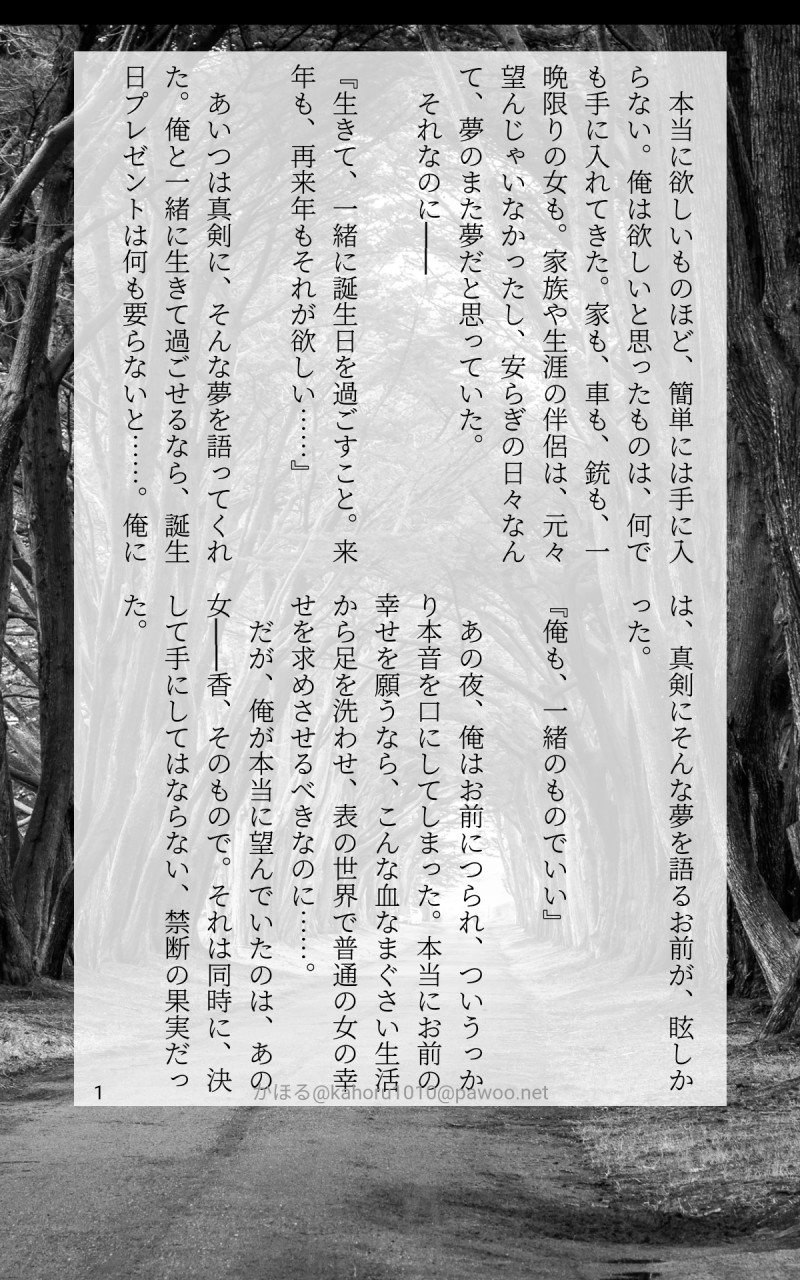 本当に欲しいものほど、簡単には手に入
らない。俺は欲しいと思ったものは、何で
も手に入れてきた。家も、車も、銃も、一
晩限りの女も。家族や生涯の伴侶は、元々
望んじゃいなかったし、安らぎの日々なん
て、夢のまた夢だと思っていた。
それなのに――
『生きて、一緒に誕生日を過ごすこと。来
年も、再来年もそれが欲しい……』
あいつは真剣に、そんな夢を語ってくれ
た。俺と一緒に生きて過ごせるなら、誕生
日プレゼントは何も要らないと……。俺に
は、真剣にそんな夢を語るお前が、眩しか
った。
『俺も、一緒のものでいい』
あの夜、俺はお前につられ、ついうっか
り本音を口にしてしまった。本当にお前の
幸せを願うなら、こんな血なまぐさい生活
から足を洗わせ、表の世界で普通の女の幸
せを求めさせるべきなのに……。
だが、俺が本当に望んでいたのは、あの
女――香、そのもので。それは同時に、決
して手にしてはならない、禁断の果実だっ
た。
1
かほる@kahoru1010@pawoo.net